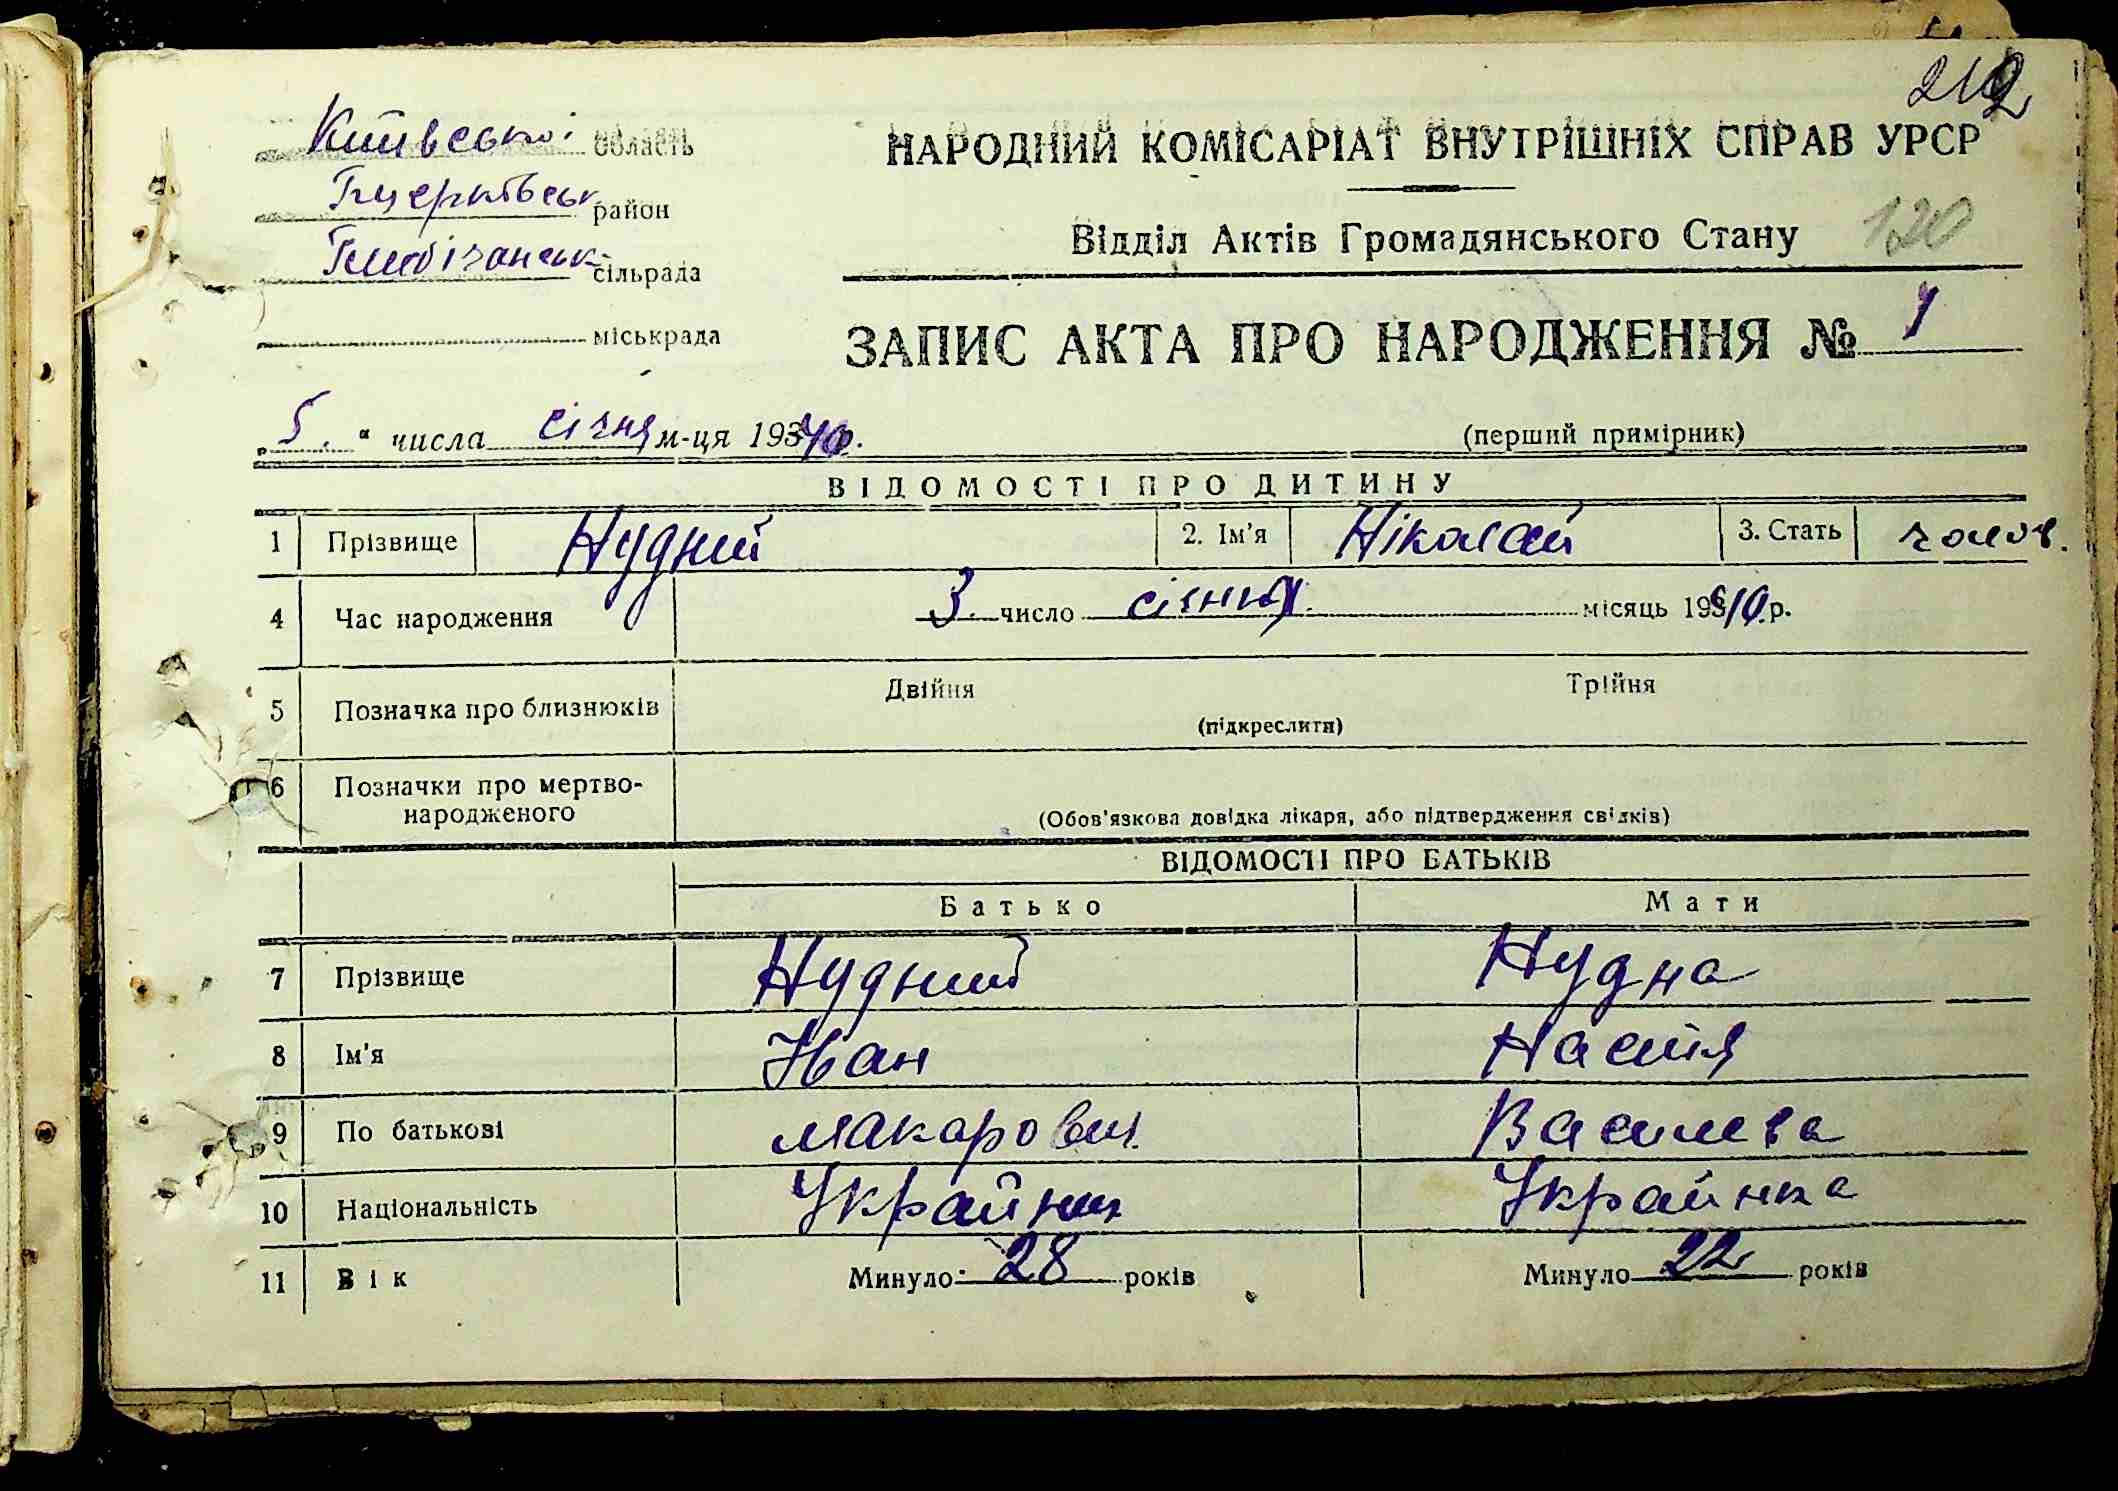 212
Київської область
НАРОДНИЙ КОМІСАРІАТ ВНУТРІШНІХ СПРАВ УРСР
Бцерківськ район
Відділ Актів Громадянського Стану 120
сільрада
міськрада
ЗАПИС АКТА ПРО НАРОДЖЕННЯ № 1
„5." числа січня м-ця 1940 р.
(перший примірник)
ВІДОМОСТІ ПРО ДИТИНУ
1 Прізвище Нудний 2. Ім'я Ніколай 3. Стать чолов.
4 Час народження 3 число січня місяць 1940 р.
5 Позначка про близнюків Двійня Трійня
(підкреслити)
6 Позначки про мертво-
народженого
(Обов'язкова довідка лікаря, або підтвердження свідків)
ВІДОМОСТІ ПРО БАТЬКІВ
Батько Мати
7 Прізвище Нудний Нудна
8 Ім'я Іван Настя
9 По батькові Макарович Василева
10 Національність Українец Українка
11 Вік Минуло 28 років Минуло 22 років